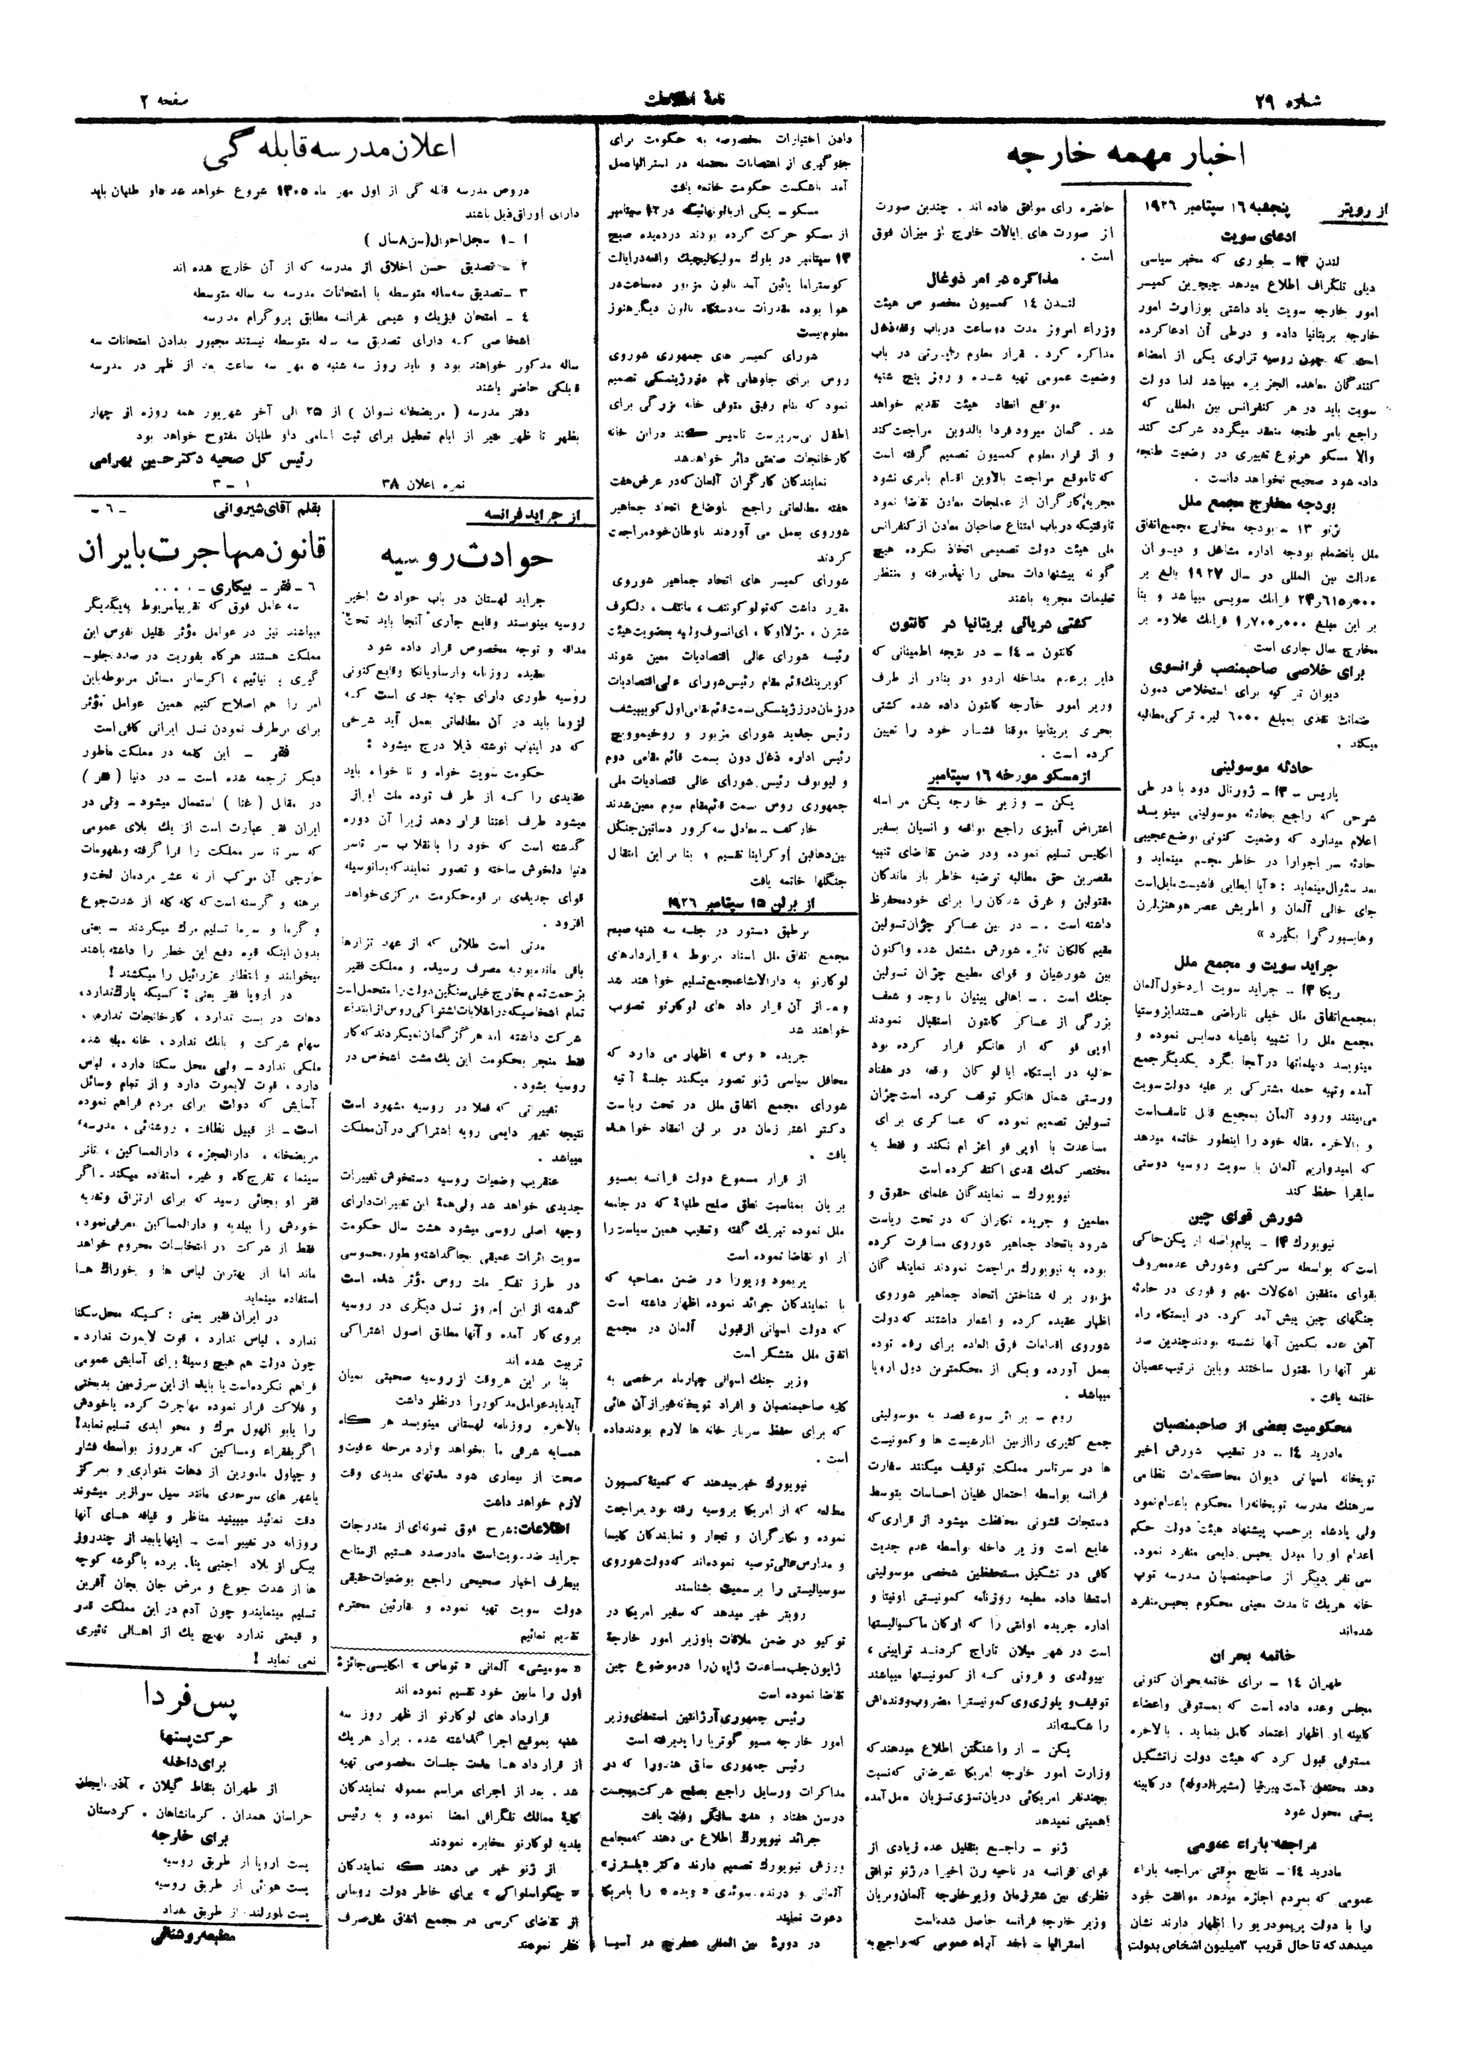 شماره ۲۹
نامهٔ اطلاعات
صفحه ۲
اخبار مهمه خارجه
از رویتر
پنجشبه ۱۶ سپتامبر ۱۹۲۶
ادعای سویت
لندن ۱۳ – بطوری که مخبر سیاسی
دیلی تلگراف اطلاع میدهد چیچرین کمیسر
امور خارجه سویت یاد داشتی بوزارت امور
خارجه بریتانیا داده و درطی آن ادعا کرده
است که چون روسیه تزاری یکی از امضاء
کنندگان معاهده الجزیره میباشد لذا دولت
سویت باید در هر کنفرانس بین المللی که
راجع بامر طنجه منعقد میگردد شرکت کند
والا مسکو هرنوع تغییری در وضعیت طنجه
داده شود صحیح نخواهد دانست .
بودجه مخارج مجمع ملل
ژنو ۱۳ – بودجه مخارج مجمع اتفاق
ملل بانضمام بودجه اداره مشاغل و دیوان
عدالت بین المللی در سال ۱۹۲۷ بالغ بر
فرانك سویسی میباشد و بنا
بر این مبلغ ۱٫۷۰۰٫۰۰۰ فرانك علاوه بر
مخارج سال جاری است
برای خلاصی صاحبمنصب فرانسوی
دیوان ترکیه برای استخلاص دمون
ضمانت نقدی بمبلغ ۶۰۵۰ لیره ترکی مطالبه
میکند .
حادثه موسولینی
پاریس – ۱۳ – ژورنال دودبا در طی
شرحی که راجع بحادثه موسولینی مینویسد
اعلام میدارد که وضعیت کنونی بوضع عجیبی
حادثه سر اجوارا در خاطر مجسم مینماید و
بعد سئوال مینماید : «آیا ایطالیای فاشیست مایل است
جای خالی آلمان و اطریش عصر هوهنزلرن
وهابسبورگ را بگیرد »
جراید سویت و مجمع ملل
ریگا ۱۳ – جراید سویت از دخول آلمان
بمجمع اتفاق ملل خیلی ناراضی هستند ایزوستیا
مجمع ملل را تشبیه باشیانه دسایس نموده و
مینویسد دیپلماتها در آنجا بگرد یکدیگر جمع
آمده و تهیه حمله مشترکی بر علیه دولت سویت
می‌بینند ورود آلمان بمجمع قابل تاسف است
و بالاخره مقاله خود را اینطور خاتمه میدهد
که امیدواریم آلمان با سویت روسیه دوستی
سابقرا حفظ کند
شورش قوای چین
نیویورك ۱۴ – پیام واصله از پکن حاکی
است که بواسطه سرکشی وشورش عده معروف
بقوای متفقین اشکالات مهم و فوری در حادثه
جنگهای چین پیش آمد کرد . در ایستگاه راه
آهن عده سکمین آنها نشسته بودند چندین صد
نفر آنها را مقتول ساختند وباین ترتیب عصیان
خاتمه یافت .
محکومیت بعضی از صاحبمنصبان
مادرید ۱۴ – در تعقیب شورش اخیر
توپخانه اسپانی دیوان محاکمات نظامی
سرهنك مدرسه توپخانه را محکوم باعدام نمود
ولی پادشاه برحسب پیشنهاد هیئت دولت حکم
اعدام او را مبدل بحبس دایمی منفرد نمود .
سی نفر دیگر از صاحبمنصبان مدرسه توپ
خانه هر یك تا مدت معینی محکوم بحبس منفرد
شده‌اند
خاتمه بحران
طهران ۱۴ – برای خاتمه بحران کنونی
مجلس وعده داده است که بمستوفی واعضاء
کابینه او اظهار اعتماد کامل بنماید . بالاخره
مستوفی قبول کرد که هیئت دولت راتشکیل
دهد محتمل است پیرنیا (مشیرالدوله) در کابینه
پستی محول شود
مراجعه باراء عمومی
مادرید ۱۴ – نتایج موقتی مراجعه باراء
عمومی که بمردم اجازه میدهد موافقت خود
را با دولت پریمودریو را اظهار دارند نشان
میدهد که تا حال قریب ۳ میلیون اشخاص بدولت
حاضره رای موافق داده اند . چندین صورت
از صورت های ایالات خارج از میزان فوق
است .
مذاکره در امر ذوغال
لندن ۱۴ کمیسیون مخصوص هیئت
وزراء امروز مدت دوساعت درباب وقفه ذغال
مذاکره کرد . قرار معلوم راپورتی در باب
وضعیت عمومی تهیه شده و روز پنج شنبه
موقع انعقاد هیئت تقدیم خواهد
شد . گمان میرود فردا بالدوین مراجعت کند
و از قرار معلوم کمیسیون تصمیم گرفته است
که تا موقع مراجعت بالدوین اقدام بامری نشود
مجریه کارگران از عملجات معادن تقاضا نمود
تاوقتیکه در باب امتناع صاحبان معادن از کنفرانس
ملی هیئت دولت تصمیمی اتخاذ نکرده هیچ
گونه پیشنهادات محلی را نپذیرفته و منتظر
تعلیمات مجریه باشند
کشتی دریائی بریتانیا در کانتون
کانتون – ۱۴ – در نتیجه اطمینانی که
دایر برعدم مداخله اردو در بنادر از طرف
وزیر امور خارجه کانتون داده شده کشتی
بحری بریتانیا موقتا فشار خود را تعیین
کرده است .
از مسکو مورخه ۱۶ سپتامبر
پکن – وزیر خارجه پکن مراسله
اعتراض آمیزی راجع بواقعه وانسیان بسفیر
انگلیس تسلیم نموده و در ضمن تقاضای تنبیه
مقصرین حق مطالبه ترضیه خاطر باز ماندگان
مقتولین و غرق شدگان را برای خود محفوظ
داشته است . – در بین عساکر چژان تسولین
مقیم کالگان نائره شورش مشتعل شده و اکنون
بین شورشیان و قوای مطیع چژان تسولین
جنك است . – اهالی پینیان با وجد و شعف
بزرگی از عساکر کانتون استقبال نمودند
اوپی فو که از هانکو فرار کرده بود
حالیه در ایستگاه ابالو کان واقعه در هفتاد
ورستی شمال هانکو توقف کرده است چژان
تسولین تصمیم نموده که عساکری برای
مساعدت با اوپی فو اعزام نکند و فقط به
مختصر کمك نقدی اکتفا کرده است
نیویورك – نمایندگان علمای حقوق و
معلمین و جریده نگاران که در تحت ریاست
شرود باتحاد جماهیر شوروی مسافرت کرده
بوده به نیویورك مراجعت نمودند نمایندگان
مزبور بر له شناختن اتحاد جماهیر شوروی
اظهار عقیده کرده و اشعار داشتند که دولت
شوروی اقدامات فوق العاده برای رفاه توده
بعمل آورده ویکی از محکمترین دول اروپا
میباشد .
روم – بر اثر سوء قصد به موسولینی
جمع کثیری را از بین انارشیست ها و کمونیست
ها در سرتاسر مملکت توقیف میکنند سفارت
فرانسه بواسطه احتمال غلیان احساسات بتوسط
دستجات قشونی محافظت میشود از قراری که
شایع است وزیر داخله بواسطه عدم جدیت
کافی در تشکیل مستحفظین شخصی موسولینی
استعفا داده مطبعه روزنامه کمونیستی اونیتا و
اداره جریده اوانتی را که ارگان ماکسیمالیستها
است در شهر میلان تاراج کردند تراپینی ،
نیوولدی و فرونی که از کمونیستها میباشند
توقیف و پلوزی وی کمونیست را مضروب ودنده‌اش
را شکسته‌اند
پکن – از واشنگتن اطلاع میدهند که
وزارت امور خارجه امریکا تعرضاتی که نسبت
بچند نفر امریکائی در بان تسزی تسزیان بعمل آمده
اهمیتی نمیدهد
ژنو – راجع بتقلیل عده زیادی از
قوای فرانسه در ناحیه رن اخیرا در ژنو توافق
نظری بین شترزمان وزیر خارجه آلمان و بریان
وزیر خارجه فرانسه حاصل شده است
استرالیا – اخذ آراء عمومی که راجع به
دادن اختیارات مخصوصه به حکومت برای
جلوگیری از اعتصابات محتمله در استرالیا بعمل
آمد باشکست حکومت خاتمه یافت
مسکو – یکی از بالونهائیکه در ۱۲ سپتامبر
از مسکو حرکت کرده بودند در دمیده صبح
۱۳ سپتامبر در بلوك سولیکالیچیك واقعه در ایالت
کوستراما پائین آمد بالون مزبور ده ساعت در
هوا بوده مقدرات سه دستگاه بالون دیگر هنوز
معلوم نیست
شورای کمیسر های جمهوری شوروی
روس برای جاودانی نام دزرژینسکی تصمیم
نمود که بنام رفیق متوفی خانه بزرگی برای
اطفال بی‌سرپرست تاسیس کنند در این خانه
کارخانجات صنعتی دائر خواهد شد
نمایندگان کارگران آلمان که در عرض هفت
هفته مطالعاتی راجع باوضاع اتحاد جماهیر
شوروی بعمل می آوردند باوطان خود مراجعت
کردند
شورای کمیسر های اتحاد جماهیر شوروی
مقرر داشت که تولوکونتف ، مانتف ، دلگوف
شترن ، مژلااوکا ، ای‌انسوف ولیه بعضویت هیئت
رئیسه شورای عالی اقتصادیات معین شوند
کویرینك قائم مقام رئیس شورای عالی اقتصادیات
در زمان درزژینسکی سمت قائم مقامی اول کوییبشف
رئیس جدید شورای مزبور و روخیموویچ
رئیس اداره ذغال دون بسمت قائم مقامی دوم
و لیوبوف رئیس شورای عالی اقتصادیات ملی
جمهوری روس سمت قائم مقام سوم معین شدند
خارکف – معادل سه کرور دساتین جنگل
بین دهاقین اوکراینا تقسیم و بنا بر این انتقال
جنگلها خاتمه یافت
از برلن ۱۵ سپتامبر ۱۹۲۶
برطبق دستور در جلسه سه شنبه صبح
مجمع اتفاق ملل اسناد مربوط به قراردادهای
لوکارنو به دارالانشاء مجمع تسلیم خواهند شد
و بعد از آن قرار داد های لوکارنو تصویب
خواهند شد
جریده «وس» اظهار می دارد که
محافل سیاسی ژنو تصور میکنند جلسهٔ آتیه
شورای مجمع اتفاق ملل در تحت ریاست
دکتر اشترزمان در برلن انعقاد خواهد
یافت .
از قرار مسموع دولت فرانسه بمسیو
بریان بمناسبت نطق صلح طلبانهٔ که در جامعه
ملل نموده تبریك گفته وتعقیب همین سیاست را
از او تقاضا نموده است
پریمود وریورا در ضمن مصاحبه که
با نمایندگان جرائد نموده اظهار داشته است
که دولت اسپانی از قبول آلمان در مجمع
اتفاق ملل متشکر است
وزیر جنك اسپانی چهارماه مرخصی به
کلیه صاحبمنصبان و افراد توپخانه غیر از آن هائی
که برای حفظ سرباز خانه ها لازم بودند داده
است .
نیویورك خبر میدهند که کمیتهٔ کمیسیون
مطالعه که از امریکا بروسیه رفته بود مراجعت
نموده و بکارگران و تجار و نمایندگان کلیسا
و مدارس عالی توصیه نموده‌اند که دولت شوروی
سوسیالیستی را برسمیت بشناسند
رویتر خبر میدهد که سفیر امریکا در
توکیو در ضمن ملاقات باوزیر امور خارجهٔ
ژاپون جلب مساعدت ژاپون را در موضوع چین
تقاضا نموده است
رئیس جمهوری آرژانتین استعفای وزیر
امور خارجه مسیو گوتریا را پذیرفته است
رئیس جمهوری سابق هندورا که در
مذاکرات ورسایل راجع بصلح شرکت میجست
درسن هفتاد و هفت سالگی وفات یافت
جرائد نیویورك اطلاع می دهند که مجامع
ورزش نیویورك تصمیم دارند دکتر «پلسترز»
آلمانی و درنده سوئدی «ویده» را بامریکا
دعوت نمایند
در دورهٔ بین المللی شطرنج در آسپا
اعلان مدرسه قابله گی
دروس مدرسه قابله گی از اول مهر ماه ۱۳۰۵ شروع خواهد شد داو طلبان باید
دارای اوراق ذیل باشند
۱ – سجل احوال (سن ۱۸ سال )
۲ – تصدیق حسن اخلاق از مدرسه که از آن خارج شده اند
۳ – تصدیق سه ساله متوسطه با امتحانات مدرسه سه ساله متوسطه
۴ – امتحان فیزیك و شیمی فرانسه مطابق پروگرام مدرسه
اشخاصی که دارای تصدیق سه ساله متوسطه نیستند مجبور بدادن امتحانات سه
ساله مذکور خواهند بود و باید روز سه شنبه ۵ مهر سه ساعت بعد از ظهر در مدرسه
قابلگی حاضر باشند
دفتر مدرسه ( مریضخانه نسوان ) از ۲۵ الی آخر شهریور همه روزه از چهار
بظهر تا ظهر غیر از ایام تعطیل برای ثبت اسامی داو طلبان مفتوح خواهد بود
رئیس کل صحیه دکتر حسین بهرامی
نمره اعلان ۳۸
۱ – ۳
از جراید فرانسه
حوادث روسیه
جراید لهستان در باب حوادث اخیر
روسیه مینویسند وقایع جاری آنجا باید تحت
مداقه و توجه مخصوص قرار داده شود
عقیده روزنامه وارساویانکا وقایع کنونی
روسیه طوری دارای جنبه جدی است که
لزوما باید در آن مطالعاتی بعمل آید شرحی
که در اینباب نوشته ذیلا درج میشود :
حکومت سویت خواه و نا خواه باید
عقایدی را که از طرف توده ملت ابراز
میشود طرف اعتنا قرار دهد زیرا آن دوره
گذشته است که خود را باتقلاب سر تاسر
دنیا دلخوش ساخته و تصور نمایند که بدانوسیله
قوای جدیدی بر قوه حکومت مرکزی خواهد
افزود .
مدتی است طلائی که از عهد تزارها
باقی مانده بود به مصرف رسیده و مملکت فقیر
بزحمت تمام مخارج خیلی سنگین دولت را متحمل است
تمام اشخاصیکه در انقلابات اشتراکی روس از ابتداء
شرکت داشته اند هرگز گمان نمیکردند که کار
فقط منجر بحکومت این یك مشت اشخاص در
روسیه بشود .
تغییراتی که فعلا در روسیه مشهود است
نتیجه تغییر دایمی رویه اشتراکی در آن مملکت
میباشد .
عنقریب وضعیات روسیه دستخوش تغییرات
جدیدی خواهد شد ولی همهٔ این تغییرات دارای
وجهه اصلی روسی میشود هشت سال حکومت
سویت اثرات عمیقی بجا گذاشته و بطور محسوسی
در طرز تفکر ملت روس مؤثر شده است
گذشته از این امروز نسل دیگری در روسیه
بروی کار آمده و آنها مطابق اصول اشتراکی
تربیت شده اند
بنا بر این هر وقت از روسیه صحبتی بمیان
آید باید عوامل مذکور را در نظر داشت
بالاخره روزنامه لهستانی مینویسد هر گاه
همسایه شرقی ما بخواهد وارد مرحله عافیت و
صحت از بیماری شود مدتهای مدیدی وقت
لازم خواهد داشت
اطلاعات: شرح فوق نمونه‌ای از مندرجات
جراید ضد سویت است ما در صدد هستیم از منابع
بیطرف اخبار صحیحی راجع بوضعیات حقیقی
دولت سویت تهیه نموده و بقارئین محترم
تقدیم نمائیم
« سومیشی» آلمانی «توماس» انگلیسی جائزهٔ
اول را مابین خود تقسیم نموده اند
قرارداد های لوکارنو از ظهر روز سه
شنبه بموقع اجرا گذاشته شده . برای هر یك
از قرارداد ها هفت جلسات مخصوصی تهیه
شد . بعد از اجرای مراسم معموله نمایندگان
کلیهٔ ممالك تلگرافی امضا نموده و به رئیس
بلدیه لوکارنو مخابره نمودند
از ژنو خبر می دهند که نمایندگان
«چکواسلواکی» برای خاطر دولت رومانی
از تقاضای کرسی در مجمع اتفاق ملل صرف
نظر نمودند
بقلم آقای شیروانی
– ۶ –
قانون مهاجرت بایران
۶ – فقر – بیکاری – ....
سه عامل فوق که تقریبا مربوط به یکدیگر
میباشند نیز در عوامل مؤثر تقلیل نفوس این
مملکت هستند هرگاه بفوریت در صدد جلو–
گیری بر نیائیم ، اگر سایر مسائل مربوطه باین
امر را هم اصلاح کنیم همین عوامل مؤثر
برای برطرف نمودن نسل ایرانی کافی است
فقر – این کلمه در مملکت ما طور
دیگر ترجمه شده است – در دنیا ( فقر )
در مقابل ( غنا ) استعمال میشود – ولی در
ایران فقر عبارت است از یك بلای عمومی
که سر تا سر مملکت را فرا گرفته و مفهومات
خارجی آن مرکب از نه عشر مردمان لخت و
برهنه و گرسنه است که گله گله از شدت جوع
و گرما و سرما تسلیم مرك میگردند – یعنی
بدون اینکه قوه دفع این خطر را داشته باشند
میخوابند و انتظار عزرائیل را میکشند !
در اروپا فقر یعنی : کسیکه پارك ندارد ،
دهات در بست ندارد ، کارخانجات ندارد ،
سهام شرکت و بانك ندارد ، خانه مبله شده
ملکی ندارد – ولی محل سکنا دارد . لباس
دارد ، قوت لایموت دارد و از تمام وسائل
آسایش که دولت برای مردم فراهم نموده
است – از قبیل نظافت ، روشنائی ، مدرسه ،
مریضخانه ، دارالعجزه ، دارالمساکین ، تئاتر
سینما ، تفرج گاه و غیره استفاده میکند . اگر
فقر او بجائی رسید که برای ارتزاق و تغذیه
خودش را ببلدیه و دارالمساکین معرفی نمود ،
فقط از شرکت در انتخابات محروم خواهد
ماند اما از بهترین لباس ها و بخوراك ها
استفاده مینماید
در ایران فقیر یعنی : کسیکه محل سکنا
ندارد . لباس ندارد ، قوت لایموت ندارد .
چون دولت هم هیچ وسیلهٔ برای آسایش عمومی
فراهم نکرده است یا باید از این سرزمین بدبختی
و فلاکت فرار نموده مهاجرت کرده یاخودش
را بابو الهول مرك و محو ابدی تسلیم نماید !
اگر بفقراء و مساکین که هر روز بواسطه فشار
و چپاول مامورین از دهات متواری و بمرکز
یا شهر های سرحدی مانند سیل سرازیر میشوند
دقت نمائید میبینید مناظر و قیافه های آنها
روزانه در تغییر است – اینها یا بعد از چند روز
بیکی از بلاد اجنبی پناه برده یا گوشه کوچه
ها از شدت جوع و مرض جان بجان آفرین
تسلیم مینمایند و چون آدم در این مملکت قدر
و قیمتی ندارد بهیچ یك از اهالی تاثیری
نمی نماید !
پس فردا
حرکت پستها
برای داخله
از طهران بنقاط گیلان ، آذربایجان
خراسان همدان . کرمانشاهان . کردستان
برای خارجه
پست اروپا از طریق روسیه
پست هوائی از طریق روسیه
پست لمورلند از طریق بغداد
مطبعه روشنائی